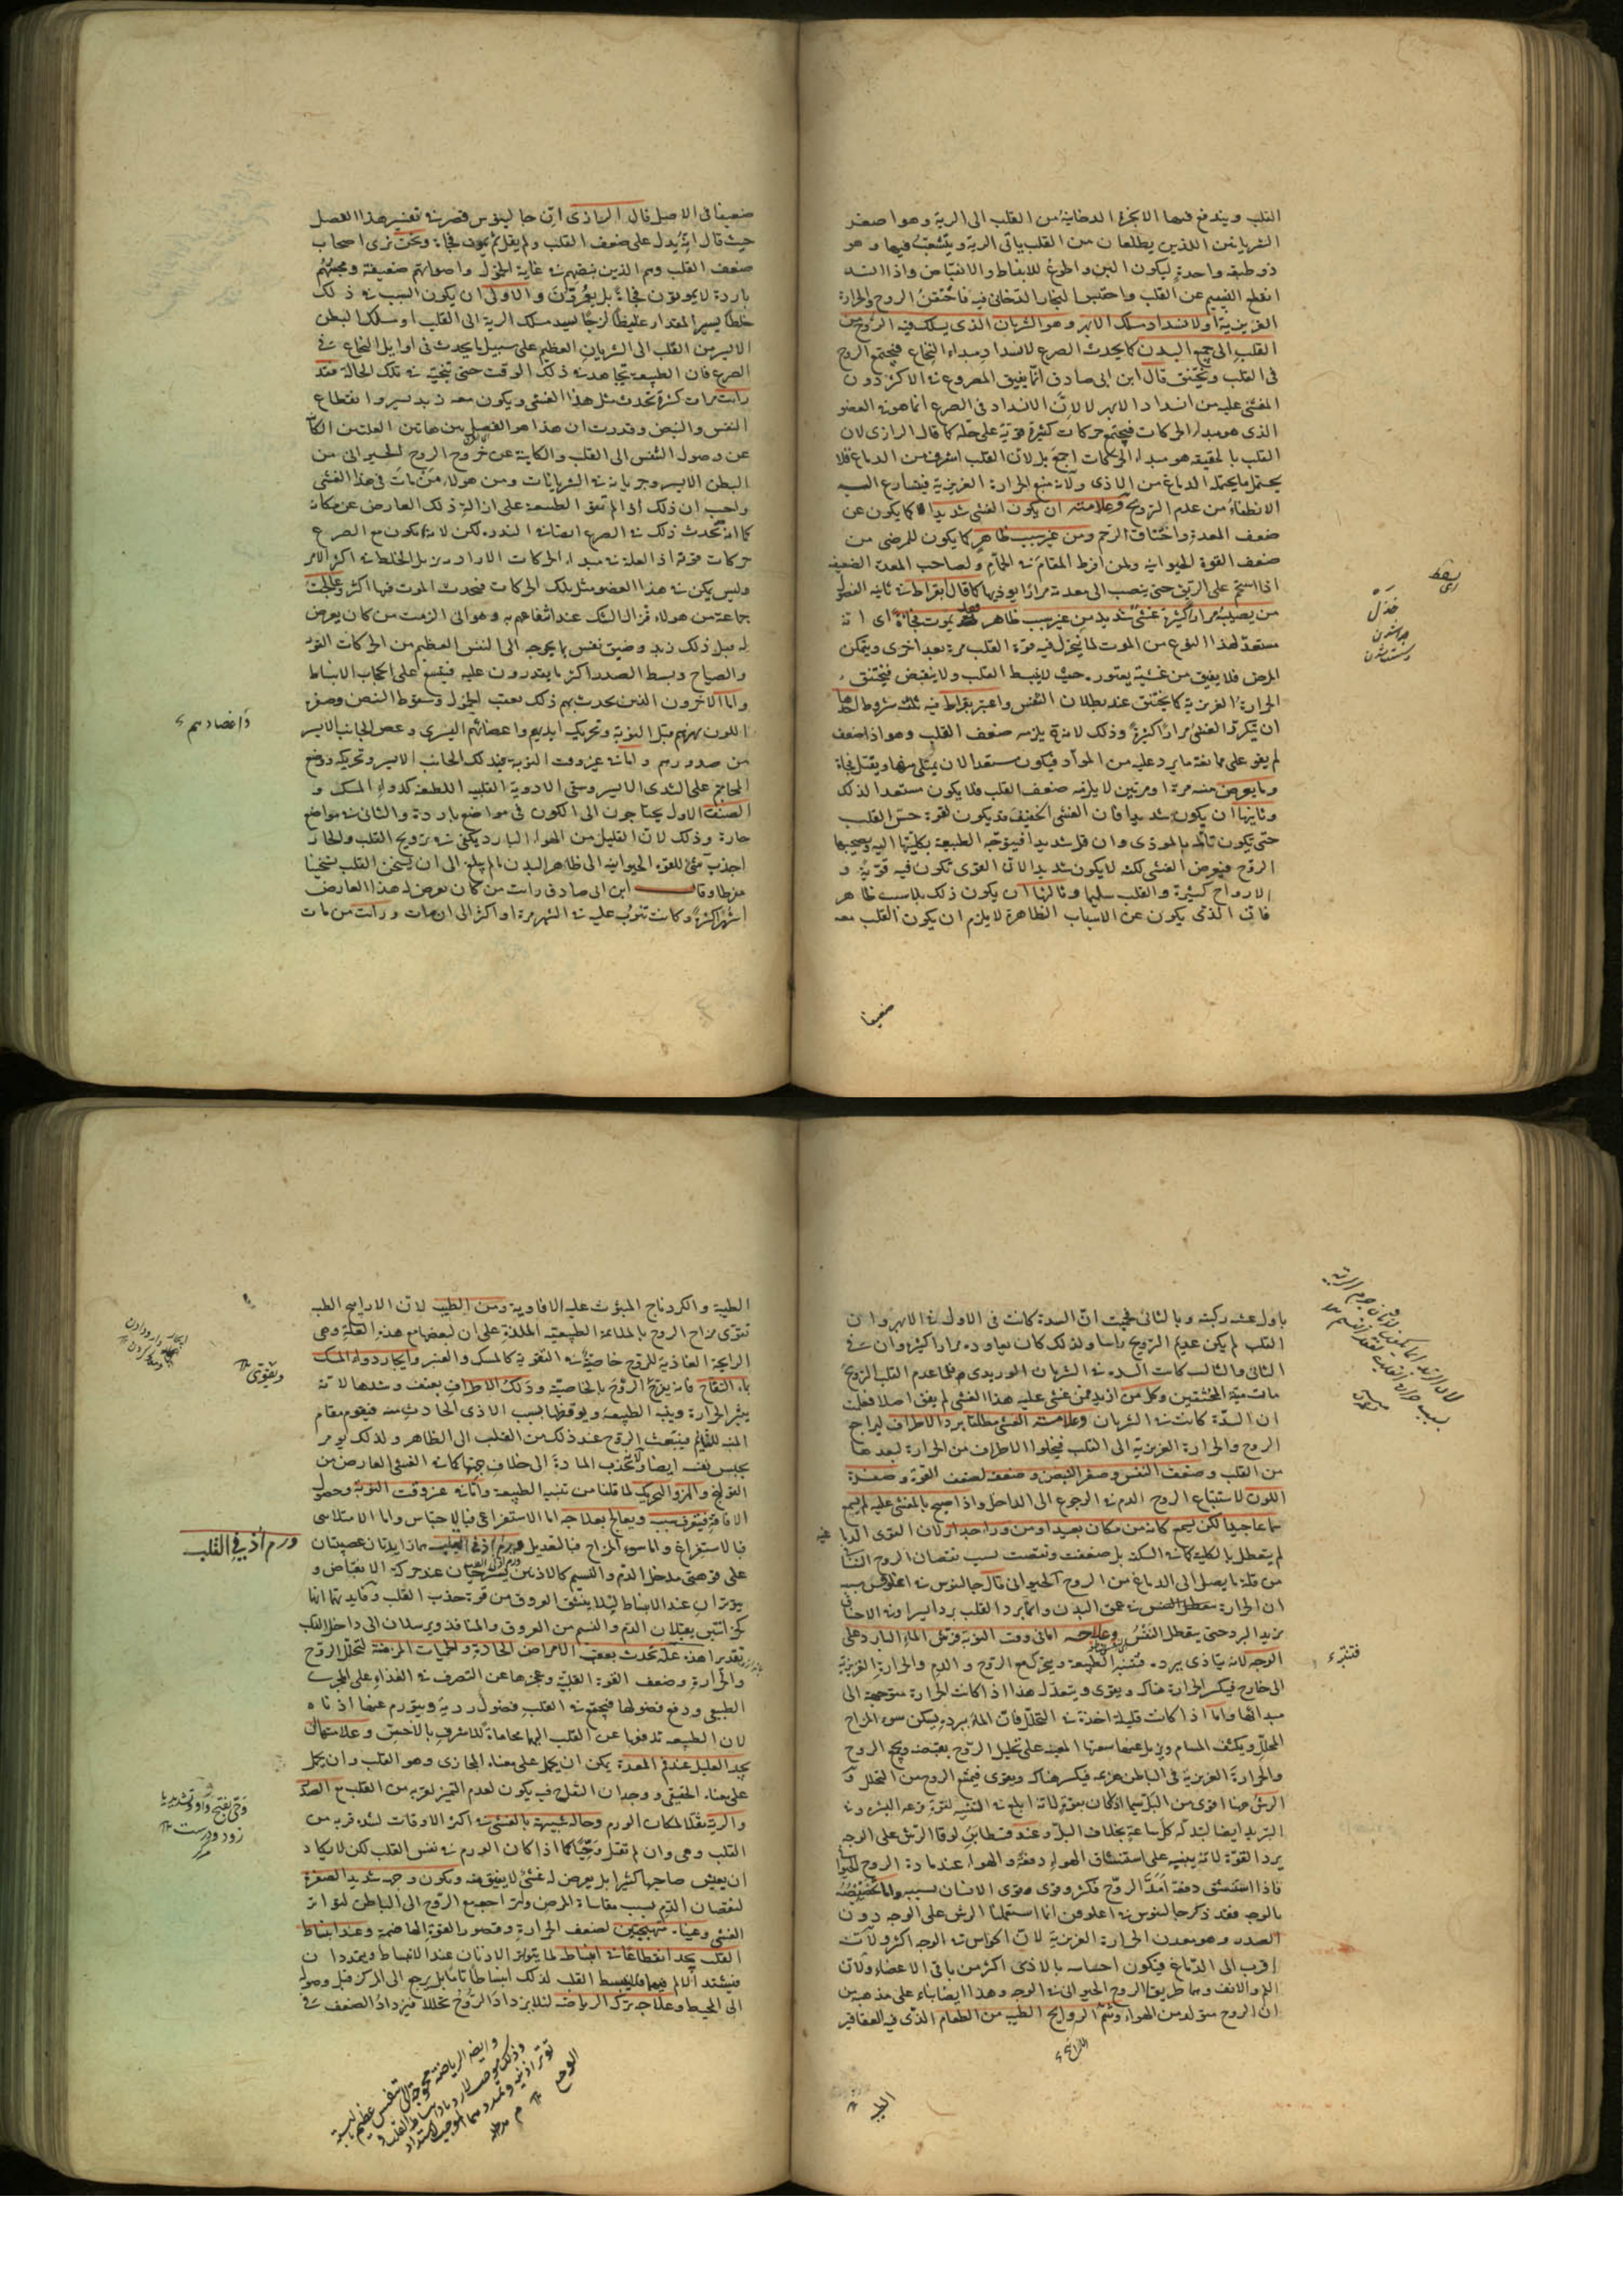 القلب ويندفع فيها الابخرة الدخانية من القلب الى الرية وهو اصغر
الشريانين اللذين يطلعان من القلب ياتي الرية ويتشعب فيها وهو
ذو طبقة واحدة ليكون الين واطوع للانبساط والانقباض واذا انسد
انقطع النسيم عن القلب واحتبس البخار الدخاني فيه فاختنق الروح والحرارة
الغريزية او لانسداد مسلك الابهر وهو الشريان الذي يسلك فيه الروح من
القلب الى جميع البدن كما يحدث الصرع لانسداد مبداء النخاع فيجتمع الروح
في القلب ويختنق قال ابن ابي صادق انما يفيق المصروع في الاكثر دون
المغشي عليه من انسداد الابهر لا لان الانسداد في الصرع انما هو في العضو
الذي هو مبداء الحركات فيجتمع حركات كثيرة قوية على حله كما قال الرازي لان
القلب بالحقيقة هو مبداء الحركات اجمع بل لان القلب اشرف من الدماغ فلا
يحتمل ما يحتمله الدماغ من الاذى ولانه منبع الحرارة الغريزية فيتسارع اليه
الانطفاء من عدم الترويح وعلامته ان يكون الغشي شديدا لا كما يكون عن
ضعف المعدة واختناق الرحم ومن غير سبب ظاهر كما يكون للمرضى من
ضعف القوة الحيوانية ولمن افرط المقام في الحمام ولصاحب المعدة الضعيفة
اذا استحم على الريق حتى ينصب الى معدته مرارا يوذيها كما قال بقراط في ثانية الفصول
من يصيبه مرارا كثيرة غشي شديد من غير سبب ظاهر فهو يموت فجاة اي انه
مستعد لهذا النوع من الموت لما ينخزل فيه قوة القلب مرة بعد اخرى ويتمكن
المرض فلا يفيق من غشية يعتور حيث لا ينبسط القلب ولا ينقبض فيختنق
الحرارة الغريزية كما يختنق عند بطلان التنفس واعتبر بقراط فيه ثلثة شروط احدها
ان يتكرر الغشي مرارا كثيرة وذلك لانه يلزمه ضعف القلب وهو اذا ضعف
لم يقو على ممانعة ما يرد عليه من المواد فيكون مستعدا لان يمتلي منها ويقتل فجاة
وما يعرض منه مرة او مرتين لا يلزمه ضعف القلب فلا يكون مستعدا لذلك
وثانيها ان يكون شديدا فان الغشي الخفيف قد يكون لقوة حس القلب
حتى يكون تالمه بالموذي وان قل شديدا فيتوجه الطبيعة بكليتها اليه ويصحبها
الروح فيعرض الغشي لكنه لا يكون شديدا لان القوى تكون فيه قوية و
الارواح كثيرة والقلب سليما وثالثها ان يكون ذلك بلا سبب ظاهر
فان الذي يكون عن الاسباب الظاهرة لا يلزم ان يكون القلب معه
ضعيفا
خذل
ضعيفا في الاصل قال الرازي ان جالينوس قصر في تفسير هذا الفصل
حيث قال انه يدل على ضعف القلب ولم يقل لم يموت فجاة ونحن نرى اصحاب
ضعف القلب وهم الذين نبضهم في غاية الخزل واصواتهم ضعيفة ومجستهم
باردة لا يموتون فجاة بل يعرقون والاولى ان يكون السبب في ذلك
خلطا يسير المقدار غليظا لزجا يسد مسلك الرية الى القلب او مسلك البطن
الايسر من القلب الى الشريان العظيم على سبيل ما يحدث في اوايل النخاع في
الصرع فان الطبيعة تجاهد في ذلك الوقت حتى تنجيه من تلك الحالة فقد
رايت مرات كثيرة تحدث مثل هذا الغشي ويكون معه زبد يسير وانقطاع
النفس والنبض وقدرت ان هذا هو الفصل بين هاتين العلتين
عن وصول النفس الى القلب والكاينة عن خروج الروح الحيواني من
البطن الايسر وجريانه في الشريانات ومن هولاء من مات في هذا الغشي
واحسب ان ذلك اذا لم تقو الطبيعة على ازالة ذلك العارض عن مكانه
كما انه تحدث ذلك في الصرع ايضا في الندرة لكن لانه يكون مع الصرع
حركات قوية اذ العلة في مبداء الحركات الارادية يزيل الخلط في اكثر الامر
وليس يمكن في هذا العضو مثل تلك الحركات فيحدث الموت فيها اكثر وعالجت
جماعة من هولاء فزال الشك عند انتفاعهم به وهو اني الزمت من كان يعرض
له قبل ذلك زبد وضيق نفس ما يحوجه الى التنفس العظيم من الحركات القوية
والصياح وبسط الصدر اكثر ما يقدرون عليه فيتسع على الحجاب الانبساط
واما الاخرون الذين يحدث بهم ذلك بعقب الخزل وسقوط النبض وصفرة
اللون
من صدورهم واما في غير وقت النوبة فبدلك الجانب الايسر وتحريكه ووضع
المحاجم على الثدي الايسر وسقي الادوية القلبية اللطيفة كدواء المسك و
الصنف الاول يحتاجون الى الكون في مواضع باردة والثاني في مواضع
حارة وذلك لان القليل من الهواء البارد يكفي في ترويح القلب والحار
اجذب شيء للقوة الحيوانية الى ظاهر البدن ما لم يبلغ الى ان يسخن القلب تسخينا
مفرطا وقال ابن ابي صادق رايت من كان يعرض له هذا العارض
اشهرا كثيرة وكانت تنوب عليه في الشهر مرة او اكثر الى ان مات ورايت من مات
باول غشية ركبته وبالثاني فحييت ان السدة كانت في الاول في الابهر وان
القلب لم يكن عديم الترويح راسا ولذلك كان يعاوده مرارا كثيرة وان في
الثاني والثالث كانت السدة في الشريان الوريدي فلما عدم القلب الترويح
مات ميتة المختنقين وكل من ازبد ممن غشي عليه هذا الغشي لم يفق اصلا فعلمت
ان السدة كانت في الشريان وعلامته الغشي مطلقا برد الاطراف لتراجع
الروح والحرارة الغريزية الى القلب فيخلوا الاطراف من الحرارة لبعدها
من القلب وضعف النفس وصغر النبض وضعفه لضعف القوة وصفرة
اللون لاستتباع الروح الدم في الرجوع الى الداخل واذا صيح بالمغشي عليه لم يسمع
سماعا جيدا لكن يسمع كانه من مكان بعيد او من وراء جدار لان القوى
لم يتعطل بالكلية كما في السكتة بل ضعفت ونقصت بسبب نقصان الروح
من قلة ما يصل الى الدماغ من الروح الحيواني قال جالينوس في
ان الحرارة
مزيد البرد حتى يتعطل التنفس وعلاجه اما في وقت النوبة فرش الماء البارد على
الوجه لانه يتاذى ببرده فتنبه الطبيعة ويتحرك مع الروح والدم والحرارة الغريزية
الى خارج فيكثر الحرارة هناك ويقوى ويتعدل هذا اذا كانت الحرارة متوجهة الى
مبدائها واما اذا كانت قليلة اخذة في التحلل فان الماء ببرده يسكن سوء المزاج
المحلل ويكثف المسام ويزيل عنها سعتها المعينة على تحليل الروح بقبضه ويجمع الروح
والحرارة الغريزية في الباطن فيكثر هناك ويقوى فيمنع الروح من التحلل و
الرش هنا اقوى من البل سيما اذا كان بقوة لانه ابلغ في التنبيه لقوة قرعه البشرة وفي
التبريد ايضا لتبدله كل ساعة بخلاف البل وعند قسطا بن لوقا الرش على الوجه
يرد القوة لانه يعينه على استنشاق الهواء دفعة والهواء عنده مادة الروح
فاذا استنشق دفعة امد الروح فكثر وقوي وقوى الانسان بسببه واما تخصيصه
بالوجه فقد ذكر جالينوس في اغلوقن انا استعملنا الرش على الوجه دون
الصدر وهو معدن الحرارة الغريزية لان الحواس في الوجه اكثر ولانه
اقرب الى الدماغ فيكون احساسه بالاذى اكثر من باقي الاعضاء ولان
الفم والانف وهما طريقا الروح الحيواني في الوجه وهذا ايضا بناء على مذهب من
ان الروح متولد من الهواء وشم الروايح الطيبة من الطعام الذي فيه العقاقير
الطيبة والكردناج المبثوث عليه الافاوية ومن الطيب لان الاراييح الطيبة
تقوي مزاج الروح بالملائمة الطبيعية الملذة على ان لبعضها مع هذه العلة وهي
الرايحة الغاذية للروح خاصية في التقوية كالمسك والعنبر وايجار دواء المسك
بماء التفاح فانه يفرح الروح بالخاصية ودلك الاطراف بعنف وشدها لانه
يثير الحرارة وينبه الطبيعة ويوقظها بسبب الاذى الحادث منه فيقوم مقام
المنبه للنائم فينبعث الروح عند ذلك من القلب الى الظاهر ولذلك يومر
بحبس نفسه ايضا ولانه يجذب المادة الى خلاف جهتها كما في الغشي العارض من
القولنج والهز والتحريك لما قلنا من تنبيه الطبيعة واما في غير وقت النوبة وحصول
الافاقة فيتعرف سببه ويعالج بعلاجه اما الاستفراغي فبالاحتباس واما الامتلائي
فبالاستفراغ واما سوء المزاج فبالتعديل ورم اذني القلب هما زايدتان عصبيتان
على فوهتي مدخل الدم والنسيم كالاذنين يسترخيان عند حركة الانقباض و
يتوتران عند الانبساط ليلا ينشق العروق من قوة جذب القلب وفايدتهما انهما
كخزانتين يقبلان الدم والنسيم من العروق والمنافذ ويرسلان الى داخل القلب
بتقدير هذه علة تحدث بعقب الامراض الحادة والحميات المزمنة لتحلل الروح
والحرارة وضعف القوة القلبية وعجزها عن التصرف في الغذاء على المجرى
الطبيعي ودفع فضولها فيجتمع في القلب فضول ردية ويتورم عنها اذناه
لان الطبيعة تدفعها عن القلب اليهما محاماة للاشرف بالاخس وعلامتهما ان
يجد العليل عند فم المعدة يمكن ان يحمل على معناه المجازي وهو القلب وان يحمل
على معناه الحقيقي ووجدان الثقل فيه يكون لعدم التميز لقربه من القلب مع الصدر
والرية ثقلا لمكان الورم وحالة شبيهة بالغشي في اكثر الاوقات لشدة قربه من
القلب وهي وان لم تقتل وحيا كما اذا كان الورم في نفس القلب لكن لا يكاد
ان يعيش صاحبها كثيرا بل يعرض له غشي لا يفيق منه ويكون وجهه شديد الصفرة
لنقصان الدم بسبب مقاساة المرض ولتراجع الروح الى الباطن لتواتر
الغشي وعيناه متهيجتين لضعف الحرارة وقصور القوة الهاضمة وعند انبساط
القلب يجد انقطاعا في انبساطه لما يتوتر الاذنان عند الانبساط ويتمددان
فيشتد الالم فيهما فلا ينبسط القلب لذلك انبساطا تاما بل يرجع الى المركز قبل وصوله
الى المحيط وعلاجه ترك الرياضة لئلا يزداد الروح تحللا فيزداد الضعف في
ورم اذني القلب